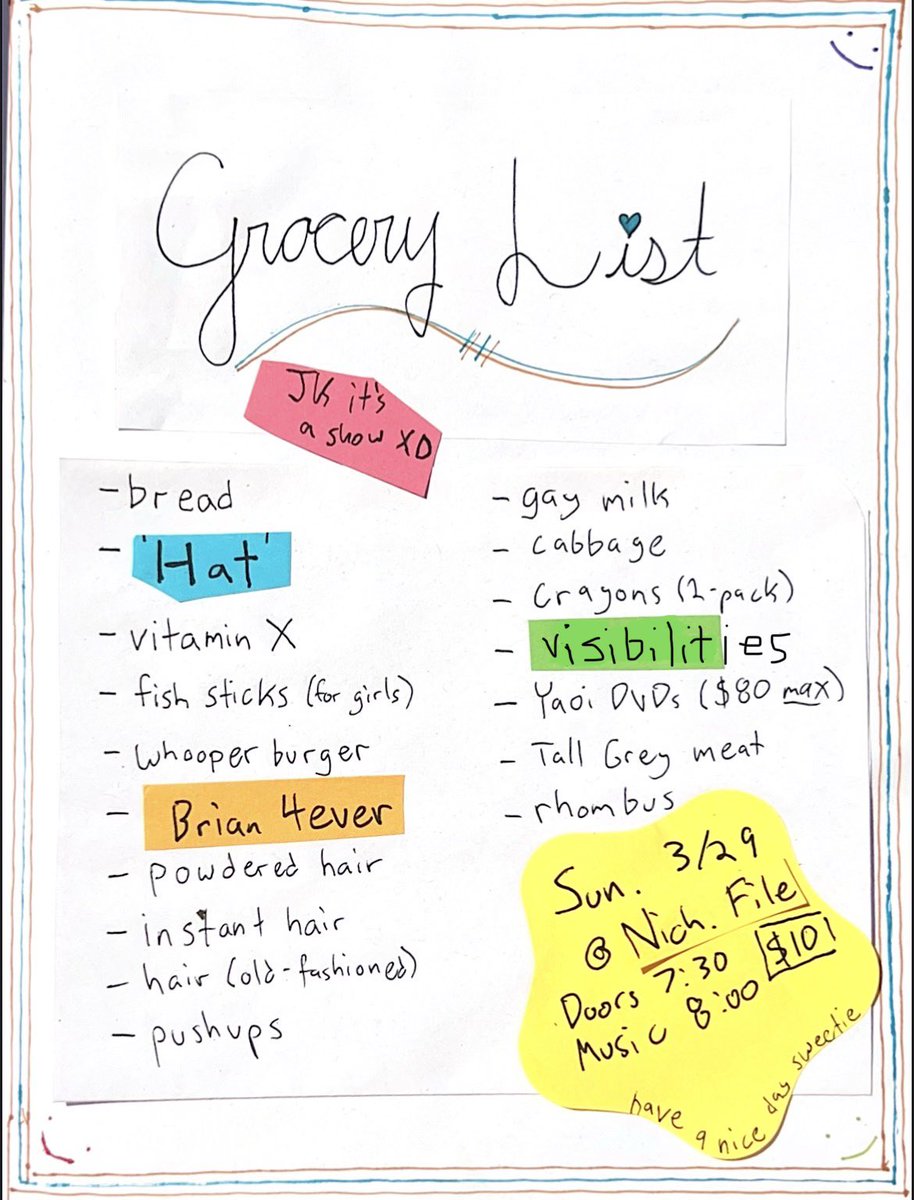 Grocery List
JK it's
a show XD
- bread
- 'Hat'
- vitamin X
- fish sticks (for girls)
- whooper burger
- Brian 4ever
- powdered hair
- instant hair
- hair (old-fashioned)
- pushups
- gay milk
- cabbage
- Crayons (2-pack)
- visibilities
- Yaoi DVDs ($80 max)
- Tall Grey meat
- rhombus
Sun. 3/29
@ Nich. File
Doors 7:30 $10
Music 8:00
have a nice day sweetie